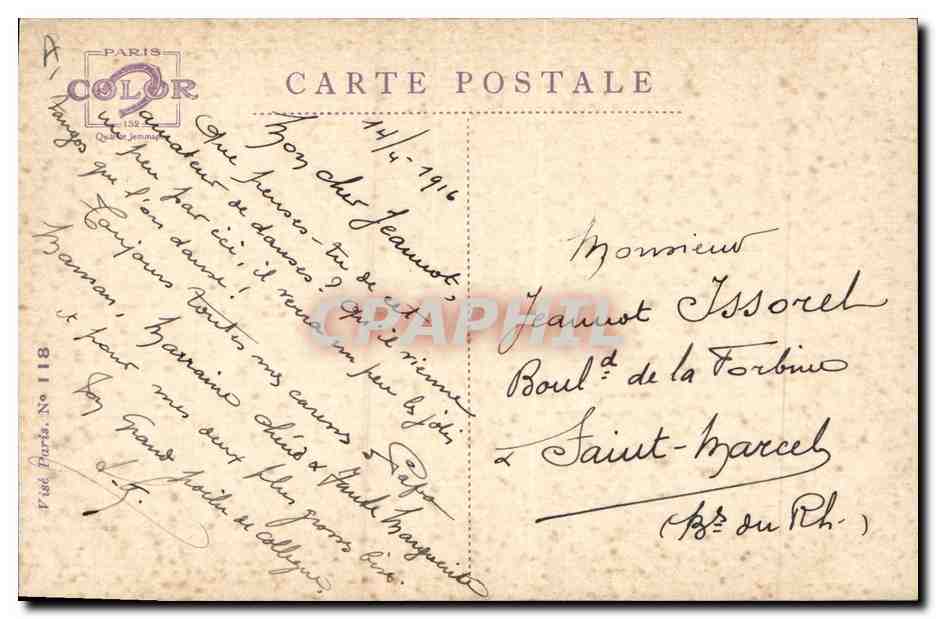 A,
PARIS
COLOR
152
Quai de Jemmapes
CARTE POSTALE
14/4-1916
Mon cher Jeannot,
Que penses-tu de cet
amateur de danses? Qu'il vienne
un peu par ici, il verra un peu les jolis
tangos que l'on danse!
Toujours toutes mes caresses à Papa
Maman, Marraine chérie & Tante Marguerite
et pour mes deux plus grosses bises.
Ton Grand poilu de collègue,
Monsieur
Jeannot Issorel
Boul.d de la Forbine
à Saint-Marcel
(Bs. du Rh.)
Visé Paris. No 118
CPAPHIL